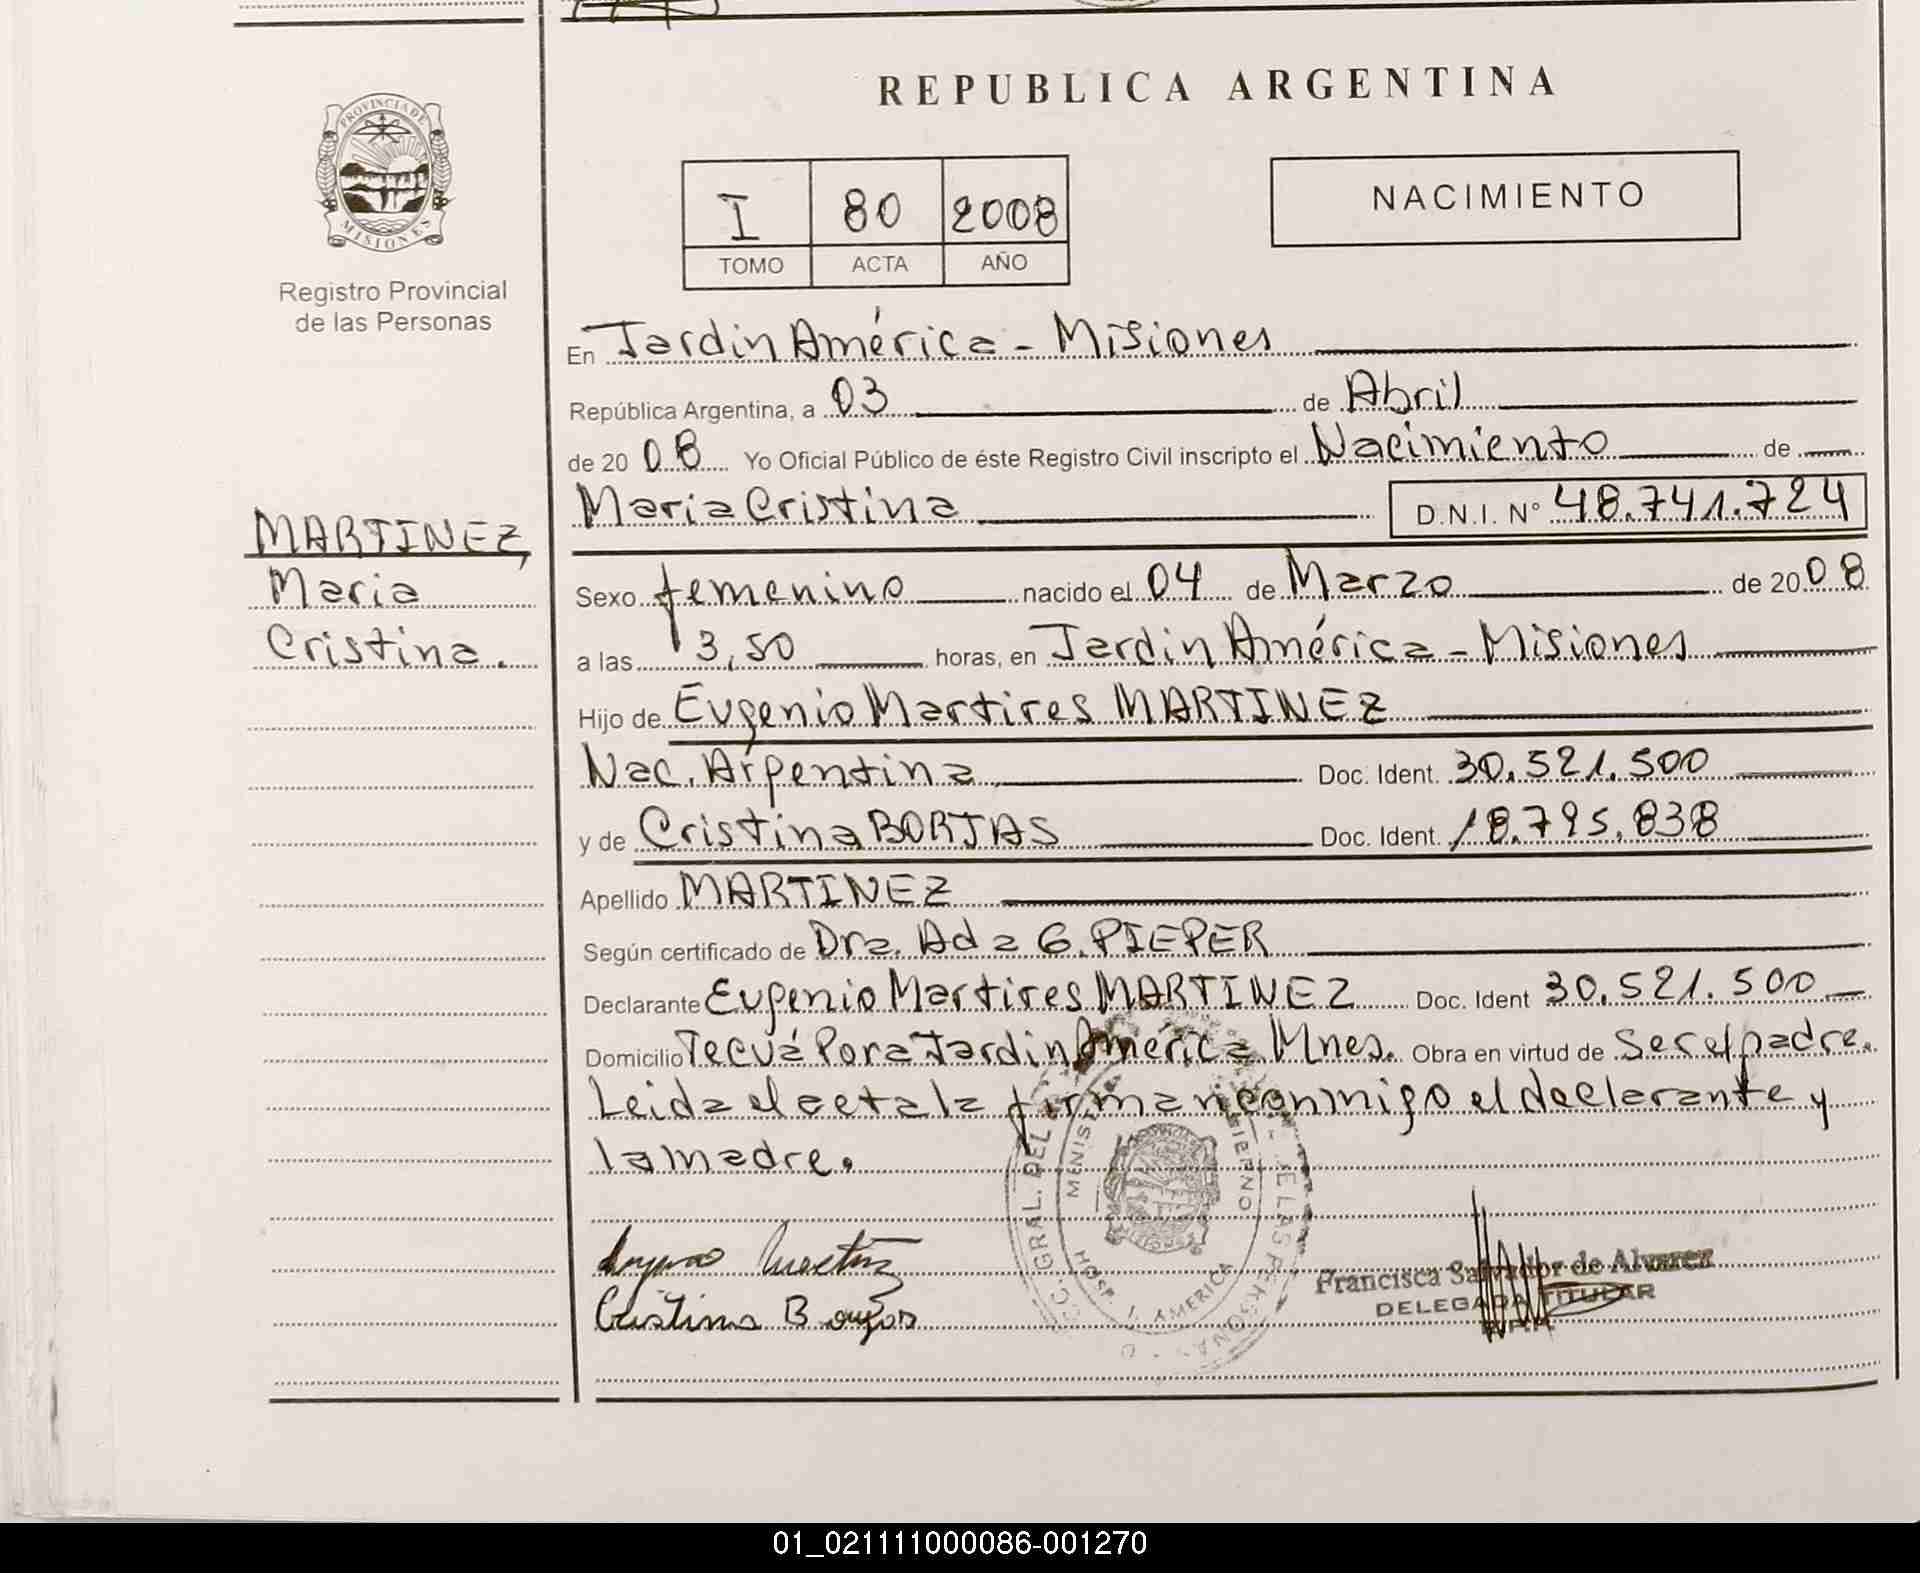 REPUBLICA ARGENTINA
PROVINCIA DE
MISIONES
Registro Provincial
de las Personas
I 80 2008
TOMO ACTA AÑO
NACIMIENTO
MARTINEZ,
Maria
Cristina.
En Jardin América - Misiones
República Argentina, a 03 de Abril
de 20 08 Yo Oficial Público de éste Registro Civil inscripto el Nacimiento de
Maria Cristina D.N.I. N° 48.741.724
Sexo femenino nacido el 04 de Marzo de 20 08
a las 3,50 horas, en Jardin América - Misiones
Hijo de Eugenio Martires MARTINEZ
Nac. Argentina Doc. Ident. 30.521.500
y de Cristina BORJAS Doc. Ident. 18.795.838
Apellido MARTINEZ
Según certificado de Dra. Ada G. PIEPER
Declarante Eugenio Martires MARTINEZ Doc. Ident 30.521.500
Domicilio Tecuá Pora Jardin América Mnes. Obra en virtud de Ser el padre.
Leida el acta la firman conmigo el declarante y
la madre.
GRAL. DEL
HOSP. J. AMERICA
Cristina
Francisca Salvador de Alvarez
DELEGADA TITULAR
01_021111000086-001270